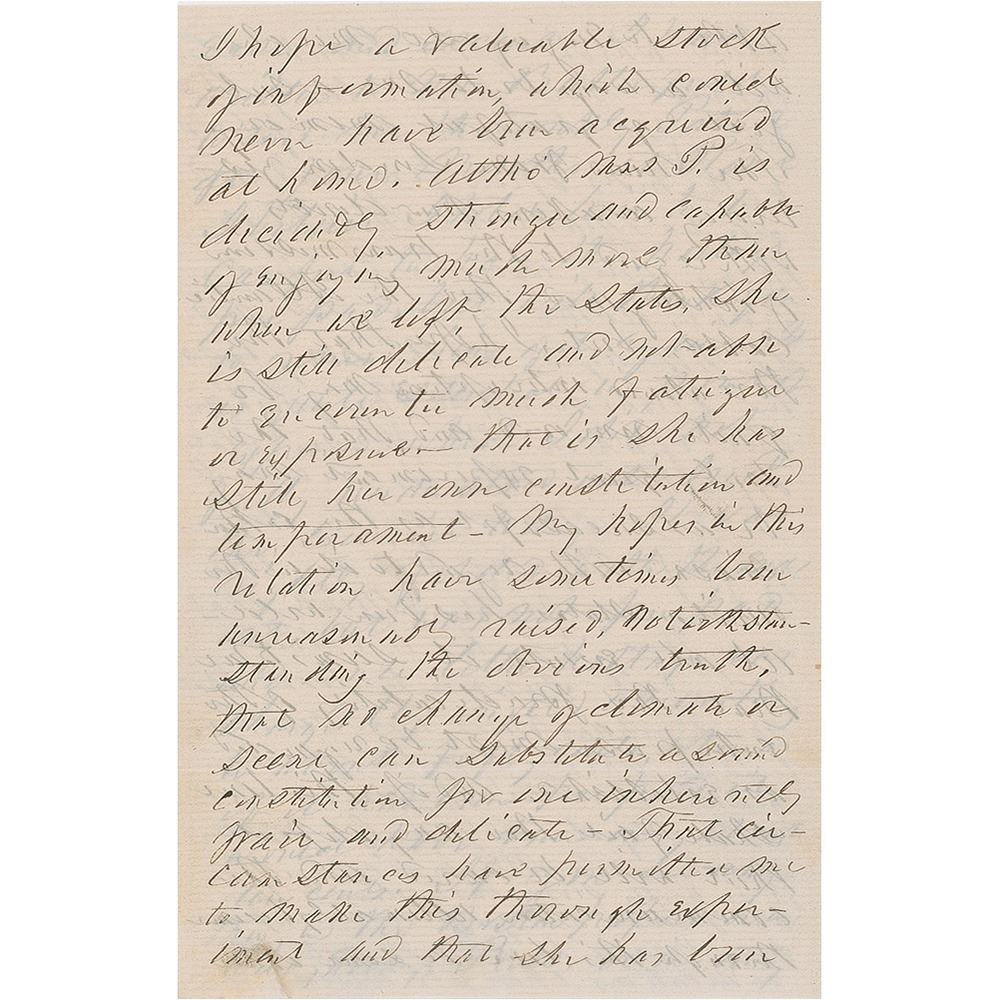 I hope a valuable stock
of information, which could
never have been acquired
at home. Altho' Mrs P. is
decidedly stronger and capable
of enjoying much more than
when we left the States, she
is still delicate and not able
to encounter much fatigue
or exposure — that is she has
still her own constitution and
temperament — My hopes in this
relation have sometimes been
unreasonably raised, notwithstan-
standing the obvious truth,
that no change of climate or
scene can substitute a sound
constitution for one inherently
frail and delicate — That cir-
cumstances have permitted me
to make this thorough exper-
iment and that she has been